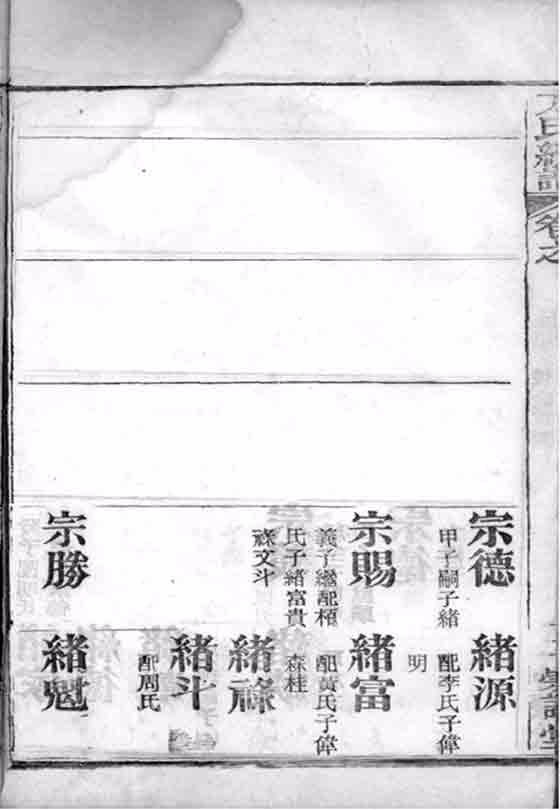 宗德
甲子嗣子緒
宗賜
義子繼配栢
氏子緒富貴
文斗
宗勝
緒源
配李氏子偉
明
緒富
配黃氏子偉
森桂
緒祿
緒斗
配周氏
緒魁